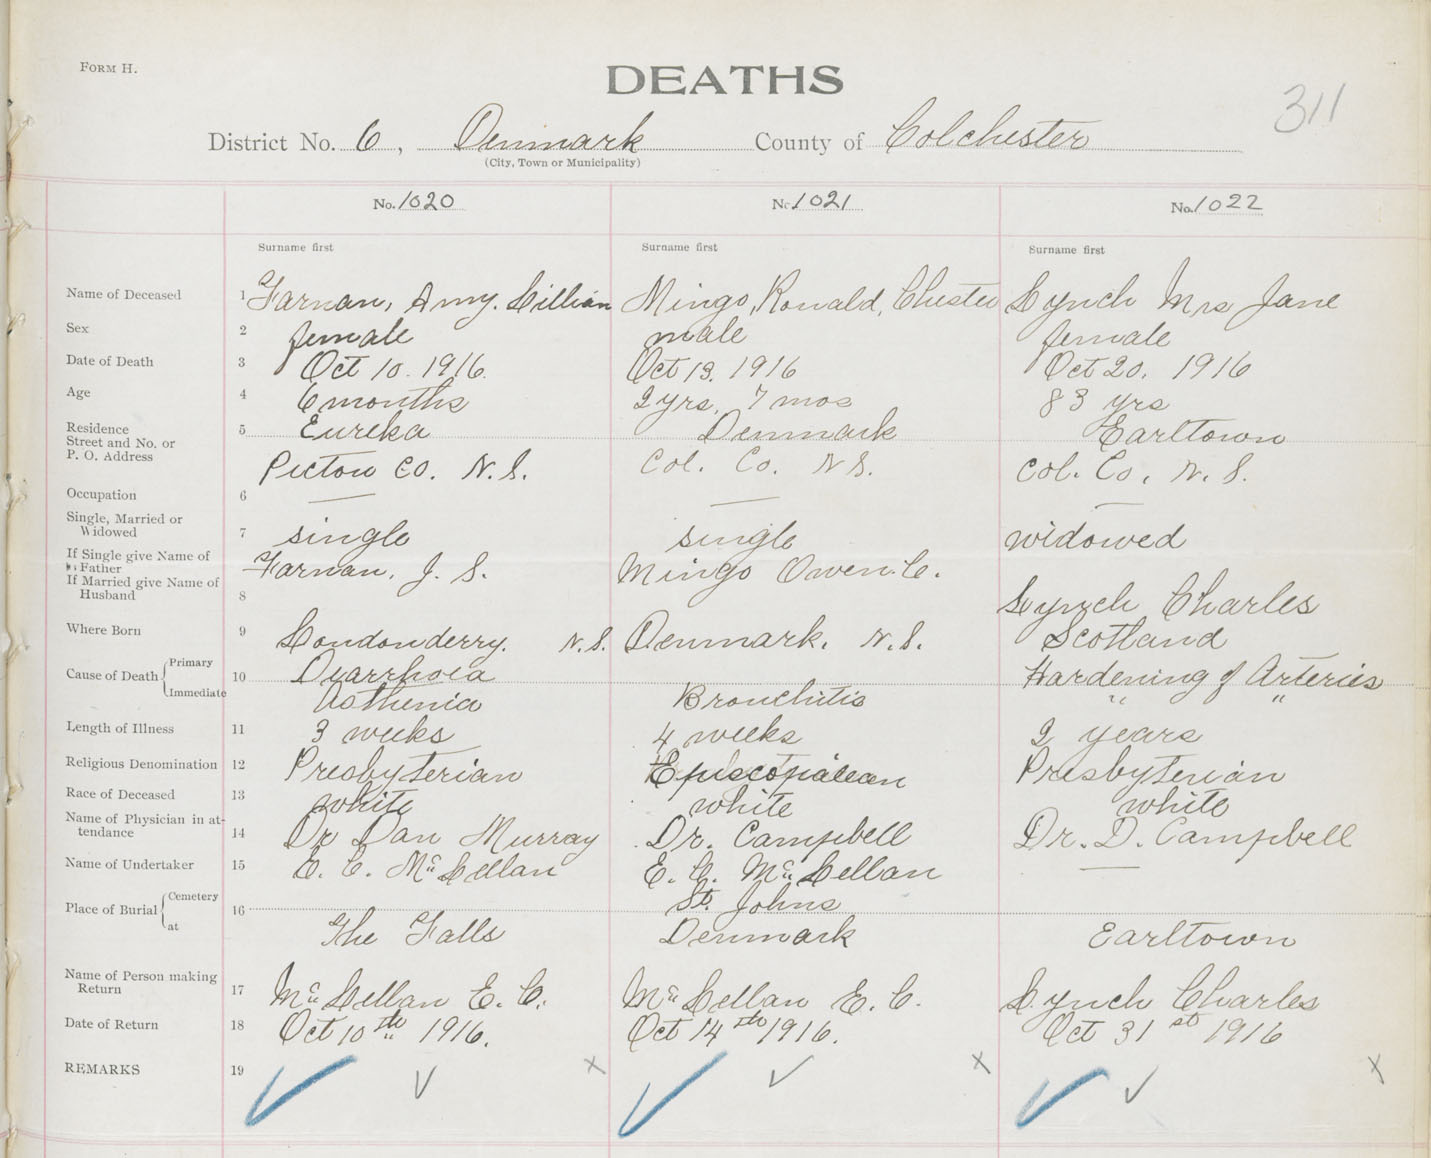 FORM H.
DEATHS
311
District No. 6, Denmark County of Colchester
(City, Town or Municipality)
No. 1020 No. 1021 No. 1022
Surname first Surname first Surname first
Name of Deceased 1 Farnan, Amy. Lillian Mingo, Ronald, Chester Lynch Mrs Jane
Sex 2 female male female
Date of Death 3 Oct 10. 1916. Oct 13. 1916 Oct 20. 1916
Age 4 6 months 2 yrs, 7 mos 83 yrs
Residence 5 Eureka Denmark Earltown
Street and No. or
P. O. Address Pictou Co. N.S. Col. Co. N.S. Col. Co, N.S.
Occupation 6 — — —
Single, Married or
Widowed 7 single single widowed
If Single give Name of
Father Farnan, J. S. Mingo Owen. C.
If Married give Name of
Husband 8 Lynch Charles
Where Born 9 Londonderry. N.S. Denmark. N.S. Scotland
Cause of Death Primary 10 Diarrhoea Hardening of Arteries
Immediate Asthenia Bronchitis " "
Length of Illness 11 3 weeks 4 weeks 2 years
Religious Denomination 12 Presbyterian Episcopalean Presbyterian
Race of Deceased 13 white white white
Name of Physician in at-
tendance 14 Dr Dan Murray Dr. Campbell Dr. D. Campbell
Name of Undertaker 15 E. C. McLellan E. C. McLellan —
Place of Burial Cemetery 16 St. Johns
at The Falls Denmark Earltown
Name of Person making
Return 17 McLellan E. C. McLellan E. C. Lynch Charles
Date of Return 18 Oct 10th 1916. Oct 14th 1916. Oct 31st 1916
REMARKS 19 ✓ ✓ x ✓ ✓ x ✓ ✓ x